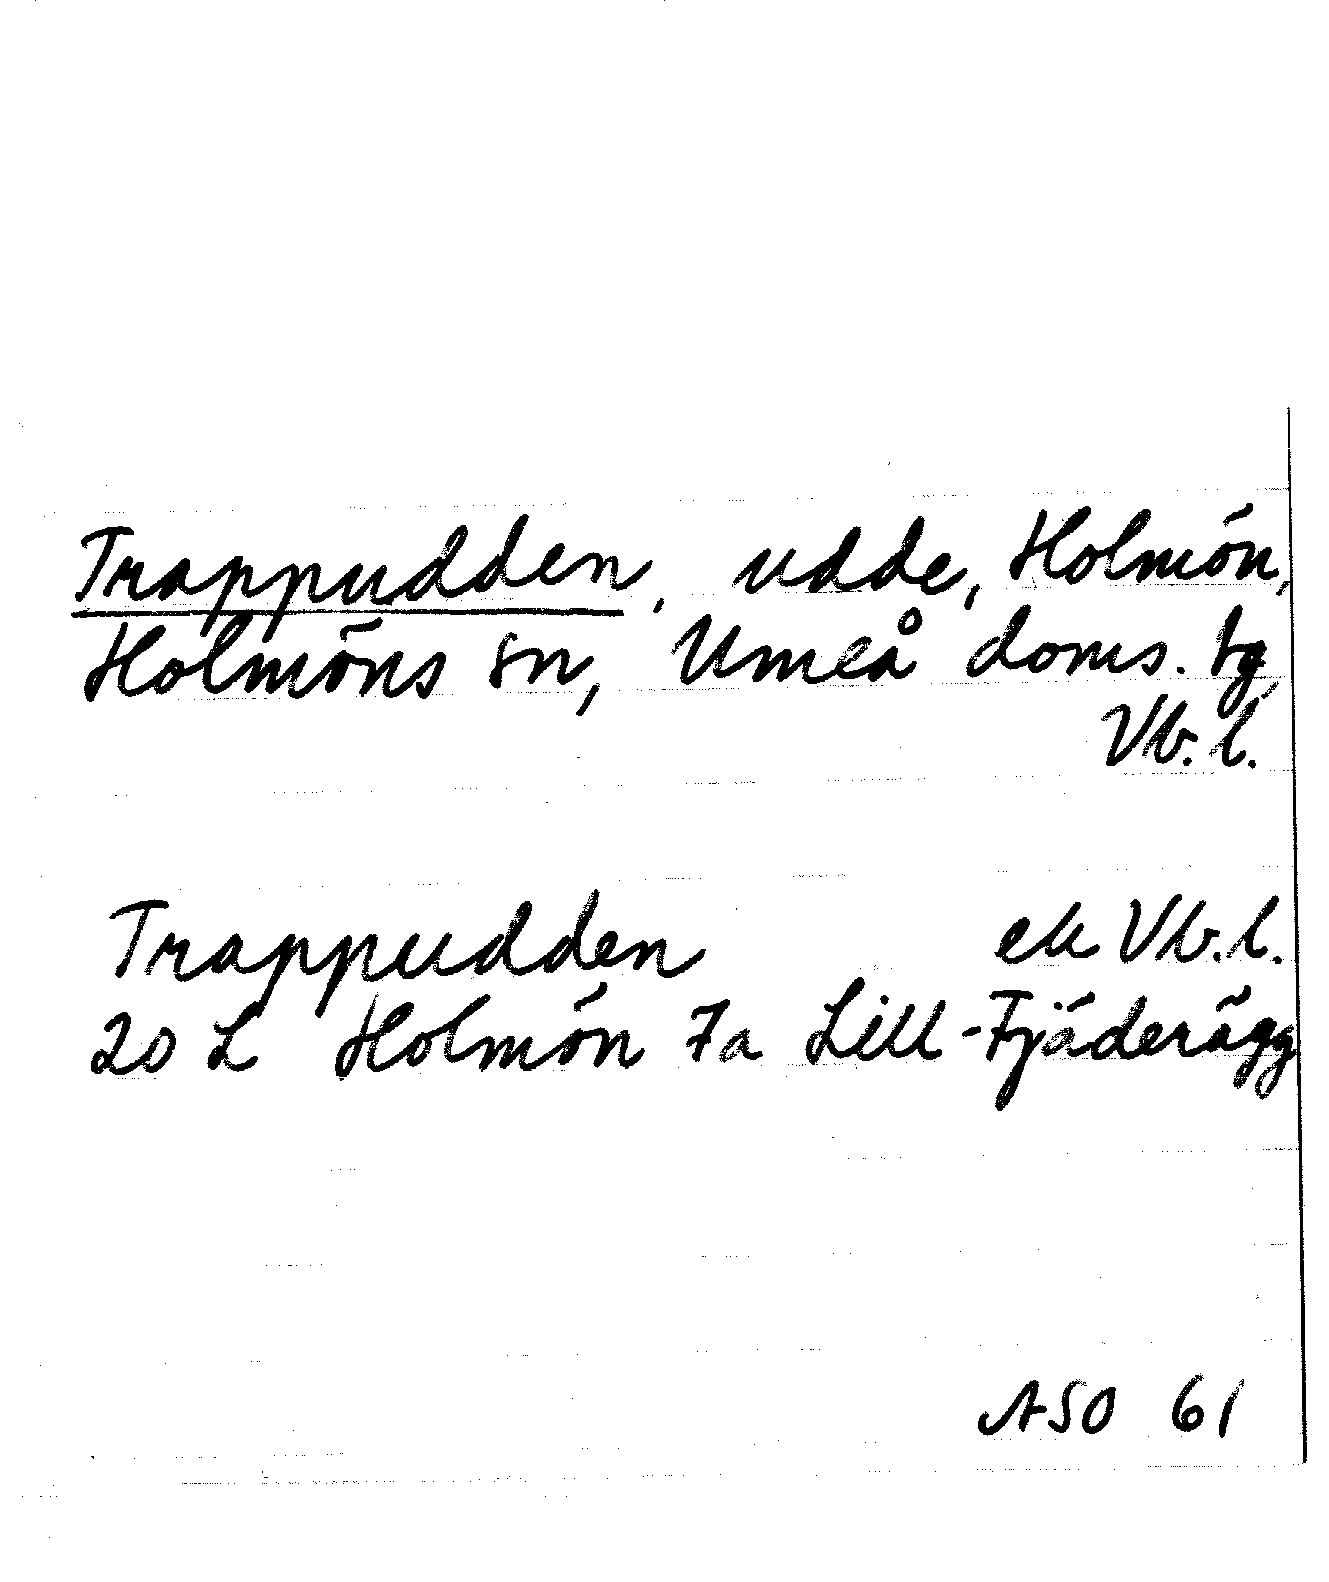 Trappudden, udde, Holmön,
Holmöns sn, Umeå doms. tg,
Vb. l.
Trappudden ek Vb. l.
20 L Holmön 7a Lill-Fjäderägg
ASO 61